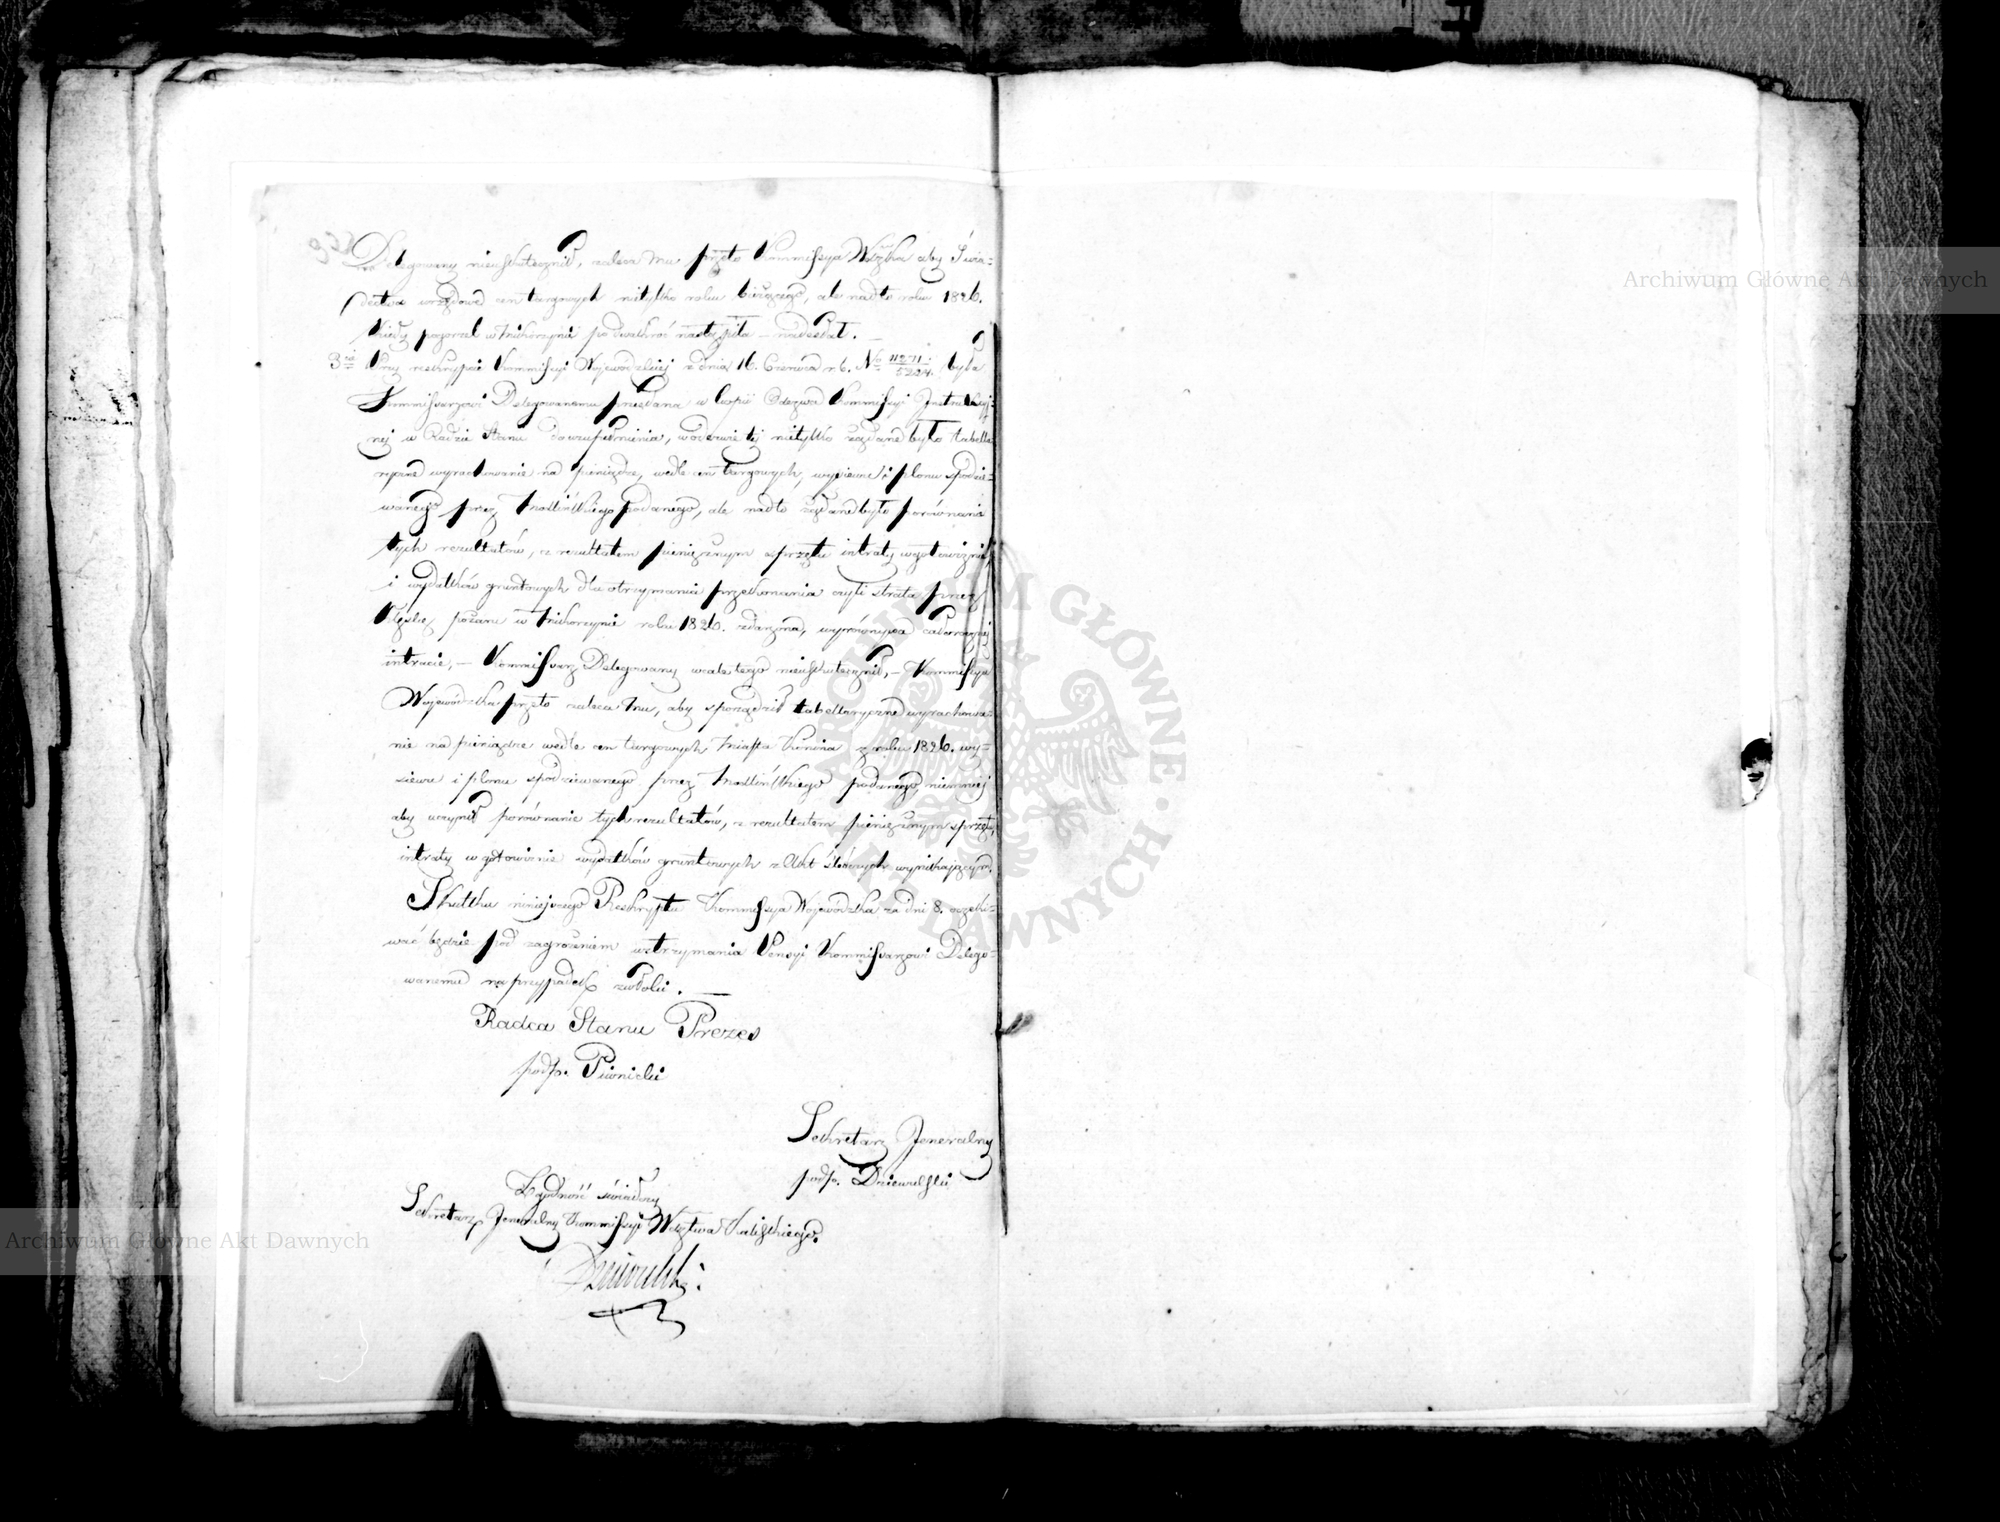 Delegowany nieuskutecznił, zaleca Mu przeto Kommissya Wdzka aby Świa-
dectwa urzędowe cen targowych nietylko roku bieżącego, ale nadto roku 1826.
kiedy pogorzel w podwakroć nastąpiła – nadesłał. –
3cie Przy reskrypcie Kommissyi Wojewódzkiej z dnia 16. Czerwca r. b. No 11271/5224. była
Kommissarzowi Delegowanemu przesłana w kopii Odezwa Kommissyi Instrukcyj-
nej w Radzie Stanu do uzupełnienia, w odezwie tej nietylko żądane było tabella-
ryczne wyrachowanie na pieniądze, wedle cen targowych, wysiewu i plonu spodzie-
wanego przez podanego, ale nadto żądane było porównanie
tych rezultatów, z rezultatem pieniężnym sprzętu intraty w gotowiznie
i wydatków gruntowych dla otrzymania przekonania czyli strata przez
klęskę pożaru w roku 1826. zdarzona, wyrównywa całorocznej
intracie, – Kommissarz Delegowany wcale tego nieuskutecznił, – Kommissya
Wojewódzka przeto zaleca Mu, aby sporządził tabellaryczne wyrachowa-
nie na pieniądze wedle cen targowych Miasta Konina z roku 1826. wy-
siewu i plonu spodziewanego przez podanego, niemniej
aby uczynił porównanie tych rezultatów, z rezultatem pieniężnym sprzętu,
intraty w gotowiznie wydatków gruntowych z Akt wynikającym.
Skutku niniejszego Reskryptu Kommissya Wojewódzka za dni 8. oczeki-
wać będzie pod zagrożeniem wstrzymania Pensyi Kommissarzowi Delego-
wanemu na przypadek zwłoki. –
Radca Stanu Prezes
podp. Piwnicki
Sekretarz Jeneralny
podp. Dziewulski
Zgodność świadczy
Sekretarz Jeneralny Kommissyi Wdztwa Kaliskiego.
Dziewulski
Archiwum Główne Akt Dawnych
Archiwum Główne Akt Dawnych
ARCHIWUM GŁÓWNE AKT DAWNYCH